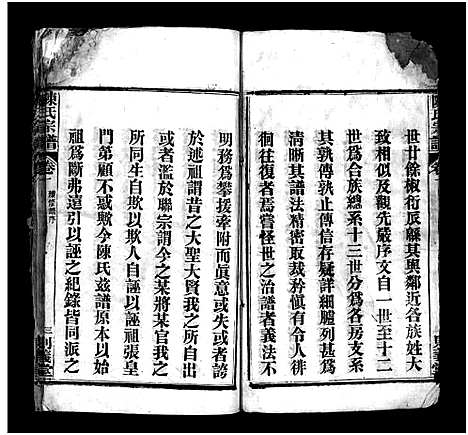 世廿餘椒衍瓜緜其與鄰近各族姓大
致相似及觀先嚴序文自一世至十二
世爲合族總系十三世分爲各房支系
其孰傳孰信存疑詳細臚列甚爲
清晰其譜法精密取裁矜愼有令人徘
徊往復者焉嘗怪世之治譜者義法不
明務爲攀援牽附而眞意或失或者誇
於述祖謂昔之大聖大賢我之所自出
或者濫於聯宗謂今之某將某官我之
所同生自欺以欺人自誣以誣祖張皇
門第顧不恧歟今陳氏兹譜原木以始
祖爲斷弗遠引以誣之紀錄皆同派之
陳氏宗譜
卷一
三
則義堂